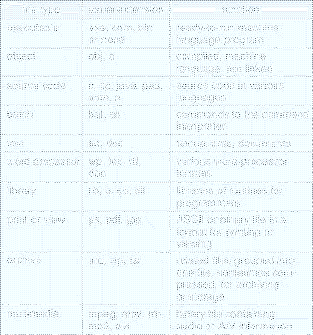 file type usual extension function
executable exe, com, bin
or none ready-to-run machine
language program
object obj, o compiled, machine
language, not linked
source code c, cc, java, pas,
asm, a source code in various
languages
batch bat, sh commands to the command
interpreter
text txt, doc textual data, documents
word processor wp, tex, rtf,
doc various word-processor
formats
library lib, a, so, dll libraries of routines for
programmers
print or view ps, pdf, jpg ASCII or binary file in a
format for printing or
viewing
archive arc, zip, tar related files grouped into
one file, sometimes com-
pressed, for archiving
or storage
multimedia mpeg, mov, rm,
mp3, avi binary file containing
audio or A/V information